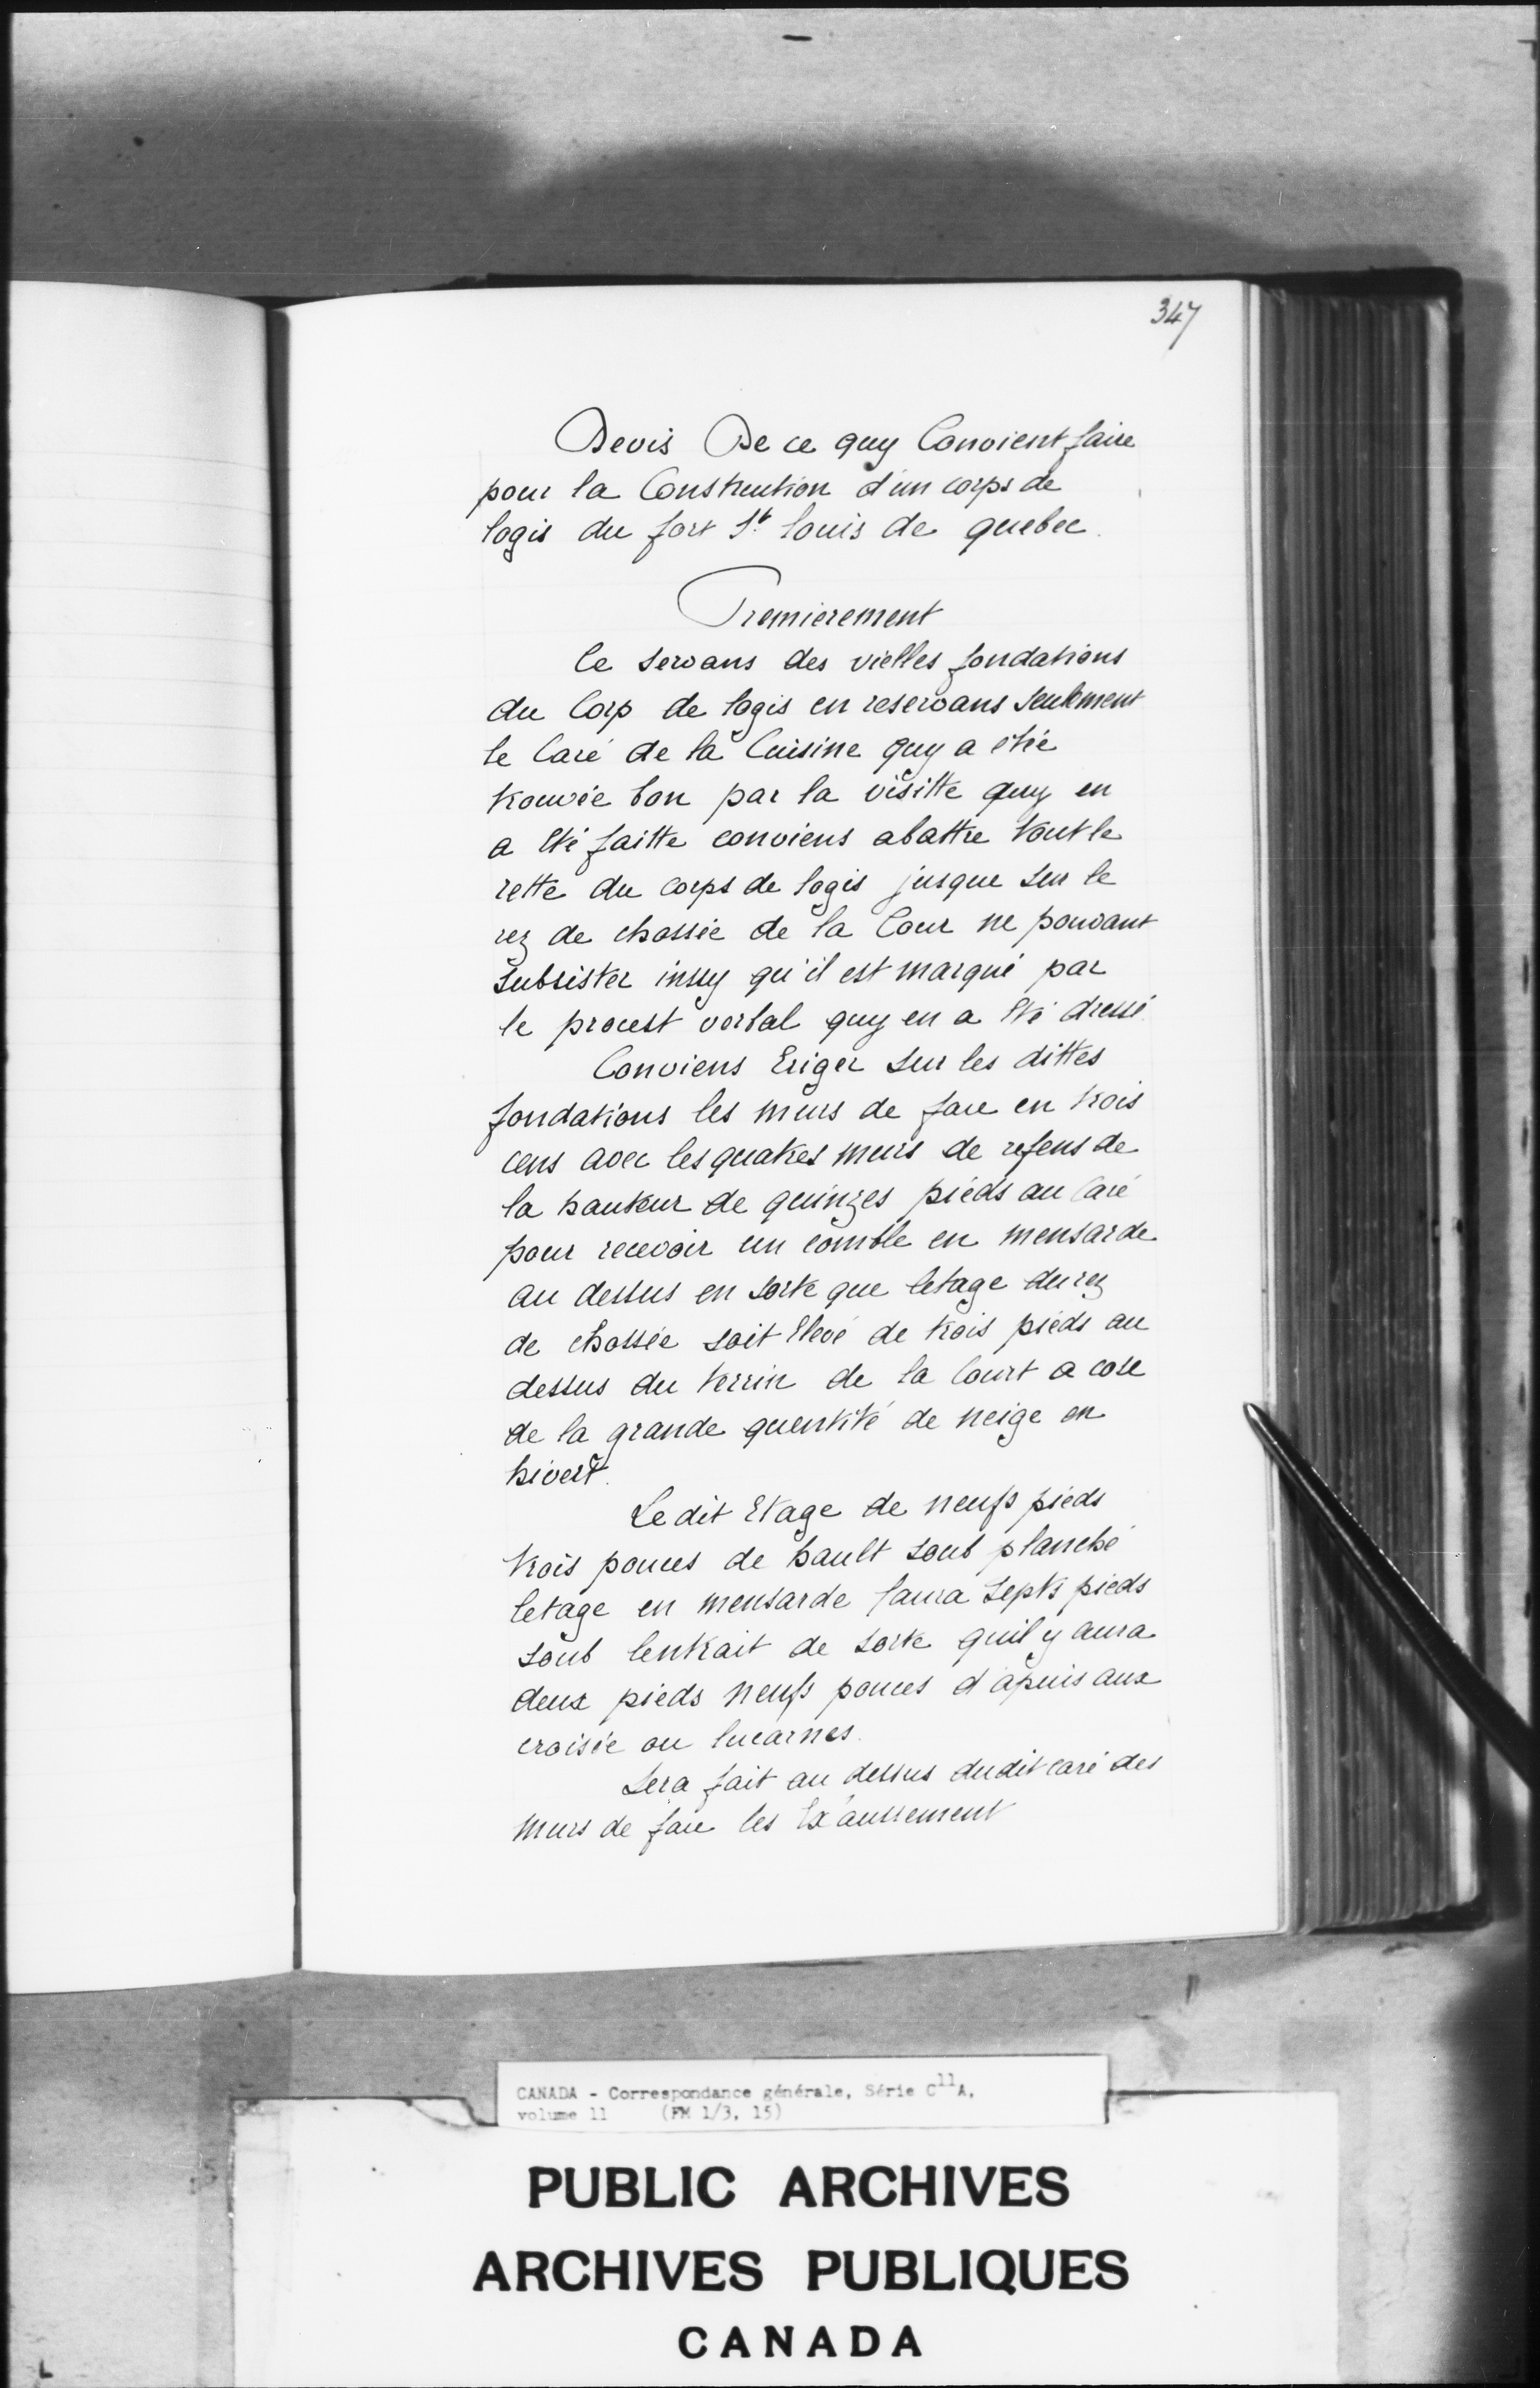 347
Devis De ce quy Convient faire
pour la Construction d'un corps de
logis du fort St louis de quebec.
Premierement
Ce servans des vielles fondations
du Corp de logis en reservans seulement
le Caré de la Cuisine quy a etée
trouvée bon par la visitte quy en
a Eté faitte conviens abattre tout le
rette du corps de logis jusque sur le
rez de chossée de la Cour ne pouvant
subsister insuy qu'il est marqué par
le proucst vorbal quy en a Eté dressé
Conviens Eriger sur les dittes
fondations les murs de face en trois
cens avec les quatres murs de refens de
la hauteur de quinzes pieds au Caré
pour recevoir un comble en mensarde
au dessus en sorte que letage du rez
de chossée soit Elevé de trois pieds au
dessus du terrin de la Court a cose
de la grande quentité de neige en
hivert.
Le dit Etage de neufs pieds
trois pouces de hault soub planché
letage en mensarde laura septs pieds
soub lentrait de sorte quil y aura
deux pieds neufs pouces d'apuis aux
croisée ou lucarnes.
Sera fait au dessus dudit caré des
murs de face les Exaussement
CANADA - Correspondance générale, Série C11A,
volume 11 (FM 1/3, 15)
PUBLIC ARCHIVES
ARCHIVES PUBLIQUES
CANADA